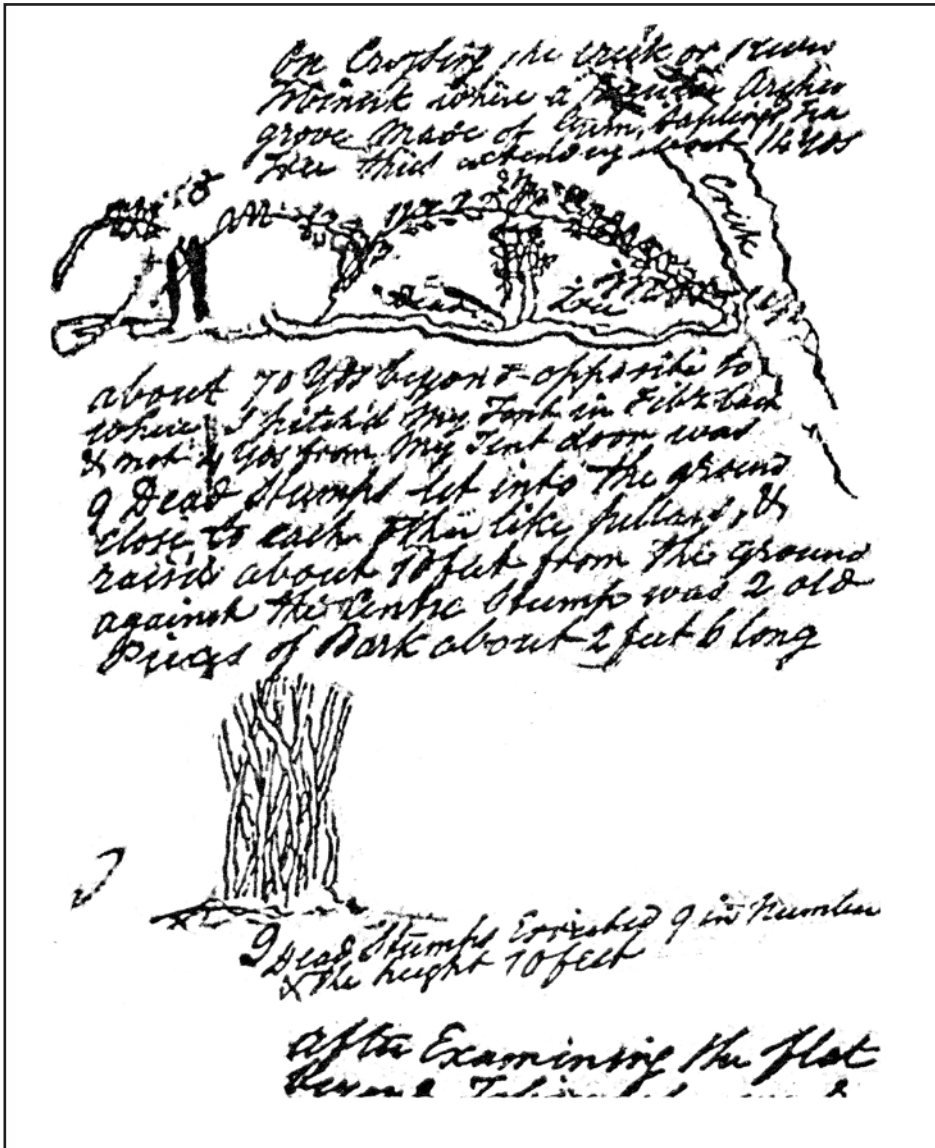 On Crossing the creek or
where a Arched
grove made of Gum, Saplings
like this extending about 14 Yds
Creek
about 70 Yds beyond & opposite to
where I pitch'd My Tent in Feby last
& not 4 Yds from My Tent door was
9 Dead Stumps let into the ground
close to each other like pillars, &
raised about 10 feet from the ground
against the Centre Stump was 2 old
Pieces of Bark about 2 feet 6 long
9 Dead Stumps Errected 9 in Number
& the height 10 feet
after Examining the flat
beyond